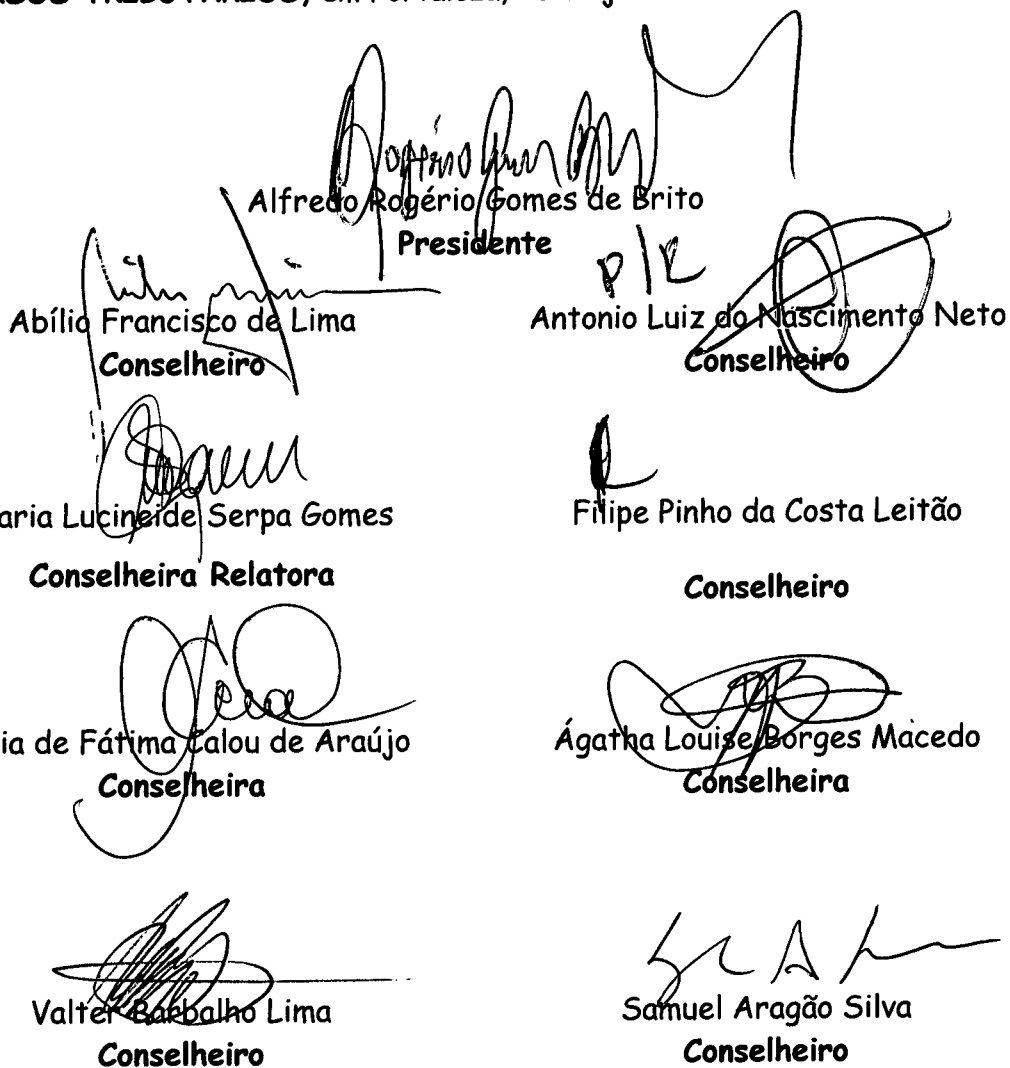 TRIBUTÁRIOS, em Fortaleza,
Alfredo Rogério Gomes de Brito
Presidente
P/R
Abílio Francisco de Lima
Conselheiro
Antonio Luiz do Nascimento Neto
Conselheiro
aria Lucineide Serpa Gomes
Conselheira Relatora
Filipe Pinho da Costa Leitão
Conselheiro
ia de Fátima Calou de Araújo
Conselheira
Ágatha Louise Borges Macedo
Conselheira
Valter Barbalho Lima
Conselheiro
Samuel Aragão Silva
Conselheiro